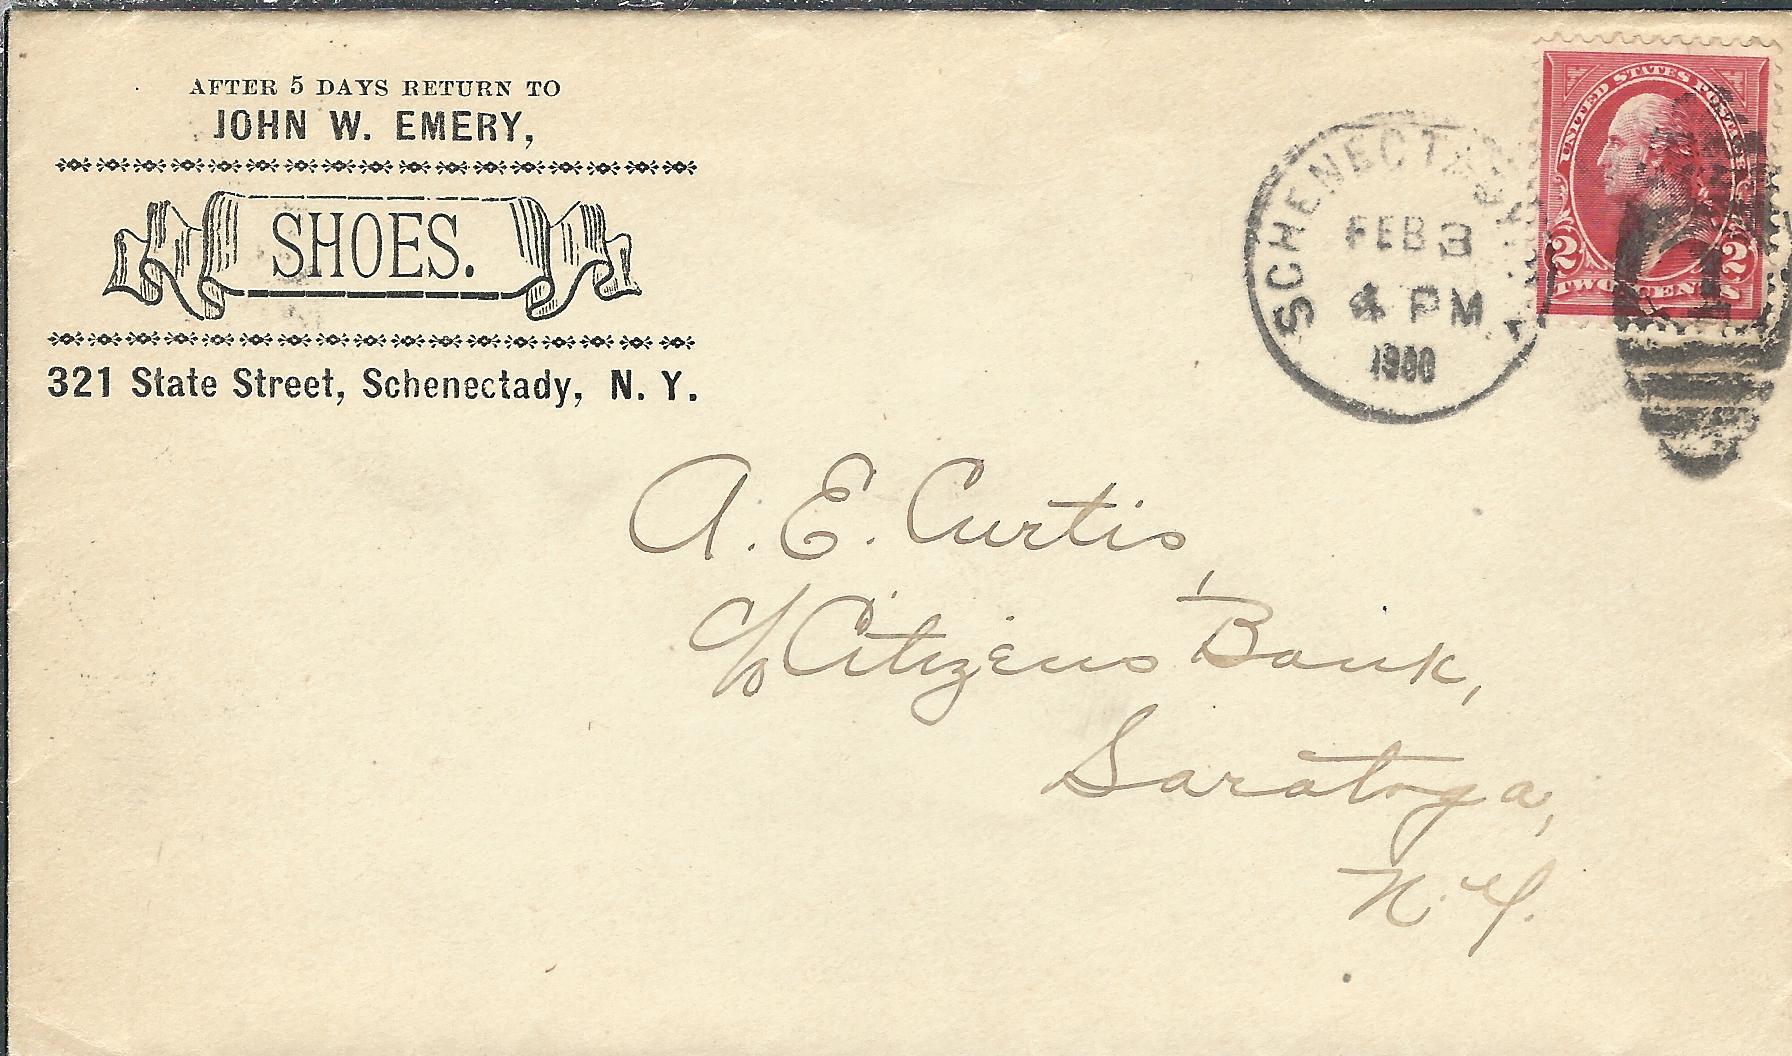 AFTER 5 DAYS RETURN TO
JOHN W. EMERY,
SHOES.
321 State Street, Schenectady, N. Y.
SCHENECTADY
FEB 3
4 PM
1900
UNITED STATES POSTAGE
2 2
TWO CENTS
A. E. Curtis,
c/o Citizens Bank,
Saratoga,
N. Y.